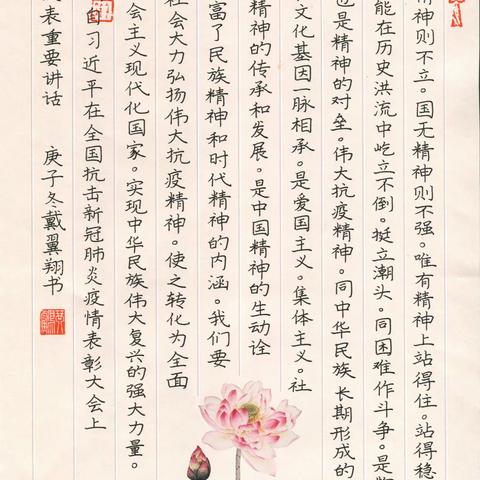 精神则不立。国无精神则不强。唯有精神上站得住。站得稳
能在历史洪流中屹立不倒。挺立潮头。同困难作斗争。是
也是精神的对垒。伟大抗疫精神。同中华民族长期形成的
文化基因一脉相承。是爱国主义。集体主义。社
精神的传承和发展。是中国精神的生动诠
富了民族精神和时代精神的内涵。我们要
社会大力弘扬伟大抗疫精神。使之转化为全面
会主义现代化国家。实现中华民族伟大复兴的强大力量。
自习近平在全国抗击新冠肺炎疫情表彰大会上
表重要讲话 庚子冬戴翼翔书